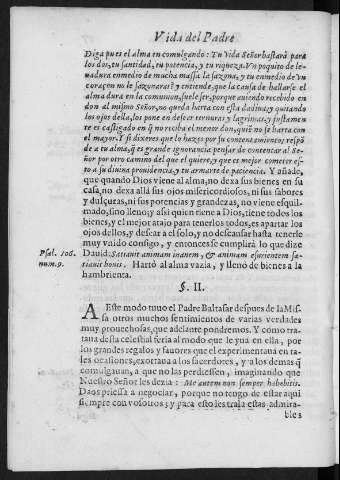 Vida del Padre
Diga pues el alma en comulgando: Tu Vida Señor bastará para
los dos, tu santidad, tu potencia, y tu riqueza. Un poquito de le-
uadura enmedio de mucha massa la sazona, y tu enmedio de vn
coraçon no le sazonaras? y entiende, que la causa de hallarse el
alma dura en la comunion, suele ser, porque auiendo recebido en
don al mismo Señor, no queda harta con esta dadiua; y quitando
los ojos della, los pone en desear ternuras y lagrimas, y justamen-
te es castigado en q̃ no reciba el menor don, quiē no se harta con
el mayor. Y si dixeres que lo hazes por tu contentamiento; respō
de a tu alma, q̃ es grande ignorancia pensar de contentar al Se-
ñor por otro camino del que el quiere, y que es mejor cometer es-
to a su diuina prouidencia, y tu armarte de paciencia. Y añade,
que quando Dios viene al alma, no dexa sus bienes en su
casa, no dexa allà sus ojos misericordiosos, ni sus sabores
y dulçuras, ni sus potencias y grandezas, no viene esquil-
mado, sino lleno; y assi quien tiene a Dios, tiene todos los
bienes, y el mejor atajo para tenerlos todos, es apartar los
ojos dellos, y desear a èl solo, y no descansar hasta tenerle
muy vnido consigo, y entonces se cumplirà lo que dize
Psal. 106. Dauid: Satiauit animam inanem, & animam esurientem sa-
num. 9. tiauit bonis. Hartò al alma vazia, y llenò de bienes a la
hambrienta.
§. II.
A Este modo tuuo el Padre Baltasar despues de la Mis-
sa otros muchos sentimientos de varias verdades
muy prouechosas, que adelante pondremos. Y como tra-
taua desta celestial feria al modo que le yua en ella, por
los grandes regalos y fauores que el experimentaua en ta-
les ocasiones, exortaua a los sacerdotes, y a los demas q̃
comulgauan, a que no las perdiessen, imaginando que
Nuestro Señor les dezia: Me autem non semper habebitis.
Daos priessa a negociar, porque no tengo de estar aqui
siempre con vosotros; y para esto les traìa estas admira-
bles